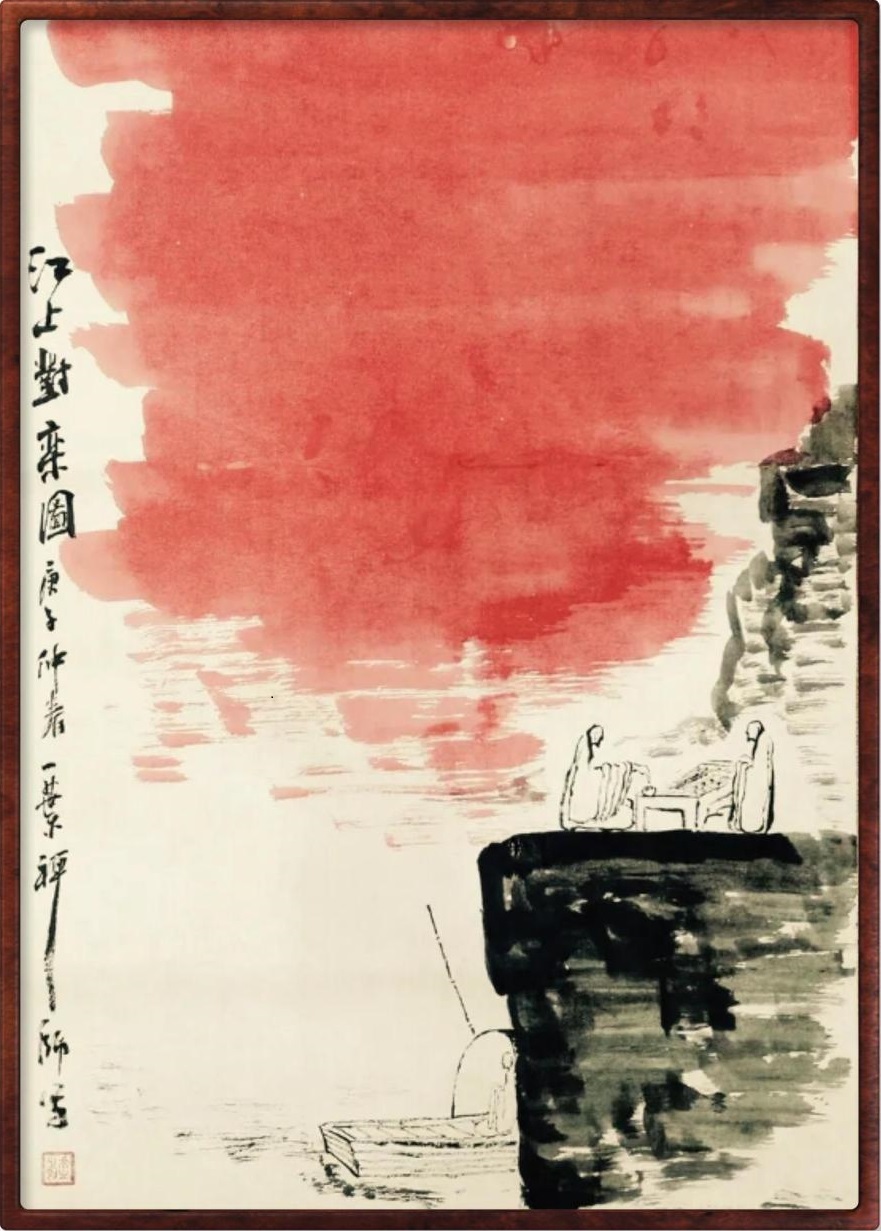 江上對弈圖庚子仲春一葉禪師寫